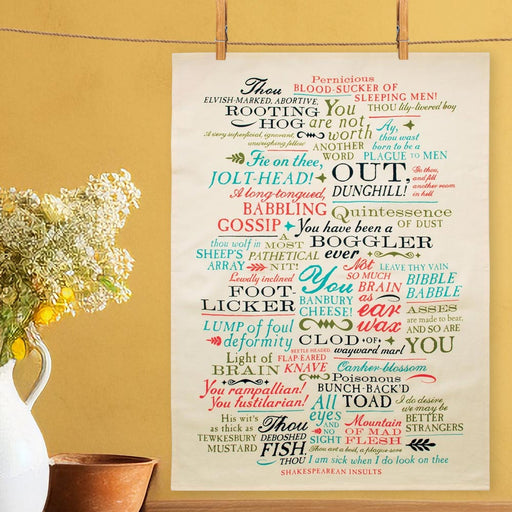 Pernicious
BLOOD-SUCKER OF
SLEEPING MEN!
Thou
ELVISH-MARKED, ABORTIVE,
ROOTING
HOG
You
are not
worth
ANOTHER
WORD
THOU lily-livered boy
A very superficial, ignorant,
unweighing fellow
Ay,
thou wast
born to be a
PLAGUE TO MEN
Fie on thee,
JOLT-HEAD!
OUT,
DUNGHILL!
Go thou,
and fill
another room
in hell
A long-tongued,
BABBLING
GOSSIP
Quintessence
OF DUST
You have been a
BOGGLER
ever
thou wolf in
SHEEP'S
ARRAY
A
MOST
PATHETICAL
NIT!
Not
SO MUCH
BRAIN
as
ear
wax
LEAVE THY VAIN
BIBBLE
BABBLE
Lewdly inclined
FOOT-
LICKER
You
BANBURY
CHEESE!
ASSES
are made to bear,
AND SO ARE
YOU
LUMP of foul
deformity
CLOD OF
wayward marl
Light of
BRAIN
BEETLE-HEADED,
FLAP-EARED
KNAVE
Canker-blossom
You rampallian!
You fustilarian!
Poisonous
BUNCH-BACK'D
TOAD
All
eyes
AND
NO
SIGHT
I do desire
we may be
BETTER
STRANGERS
His wit's
as thick as
TEWKESBURY
MUSTARD
Thou
DEBOSHED
FISH,
THOU
Mountain
OF MAD
FLESH
Thou art a boil, a plague-sore
I am sick when I do look on thee
SHAKESPEAREAN INSULTS